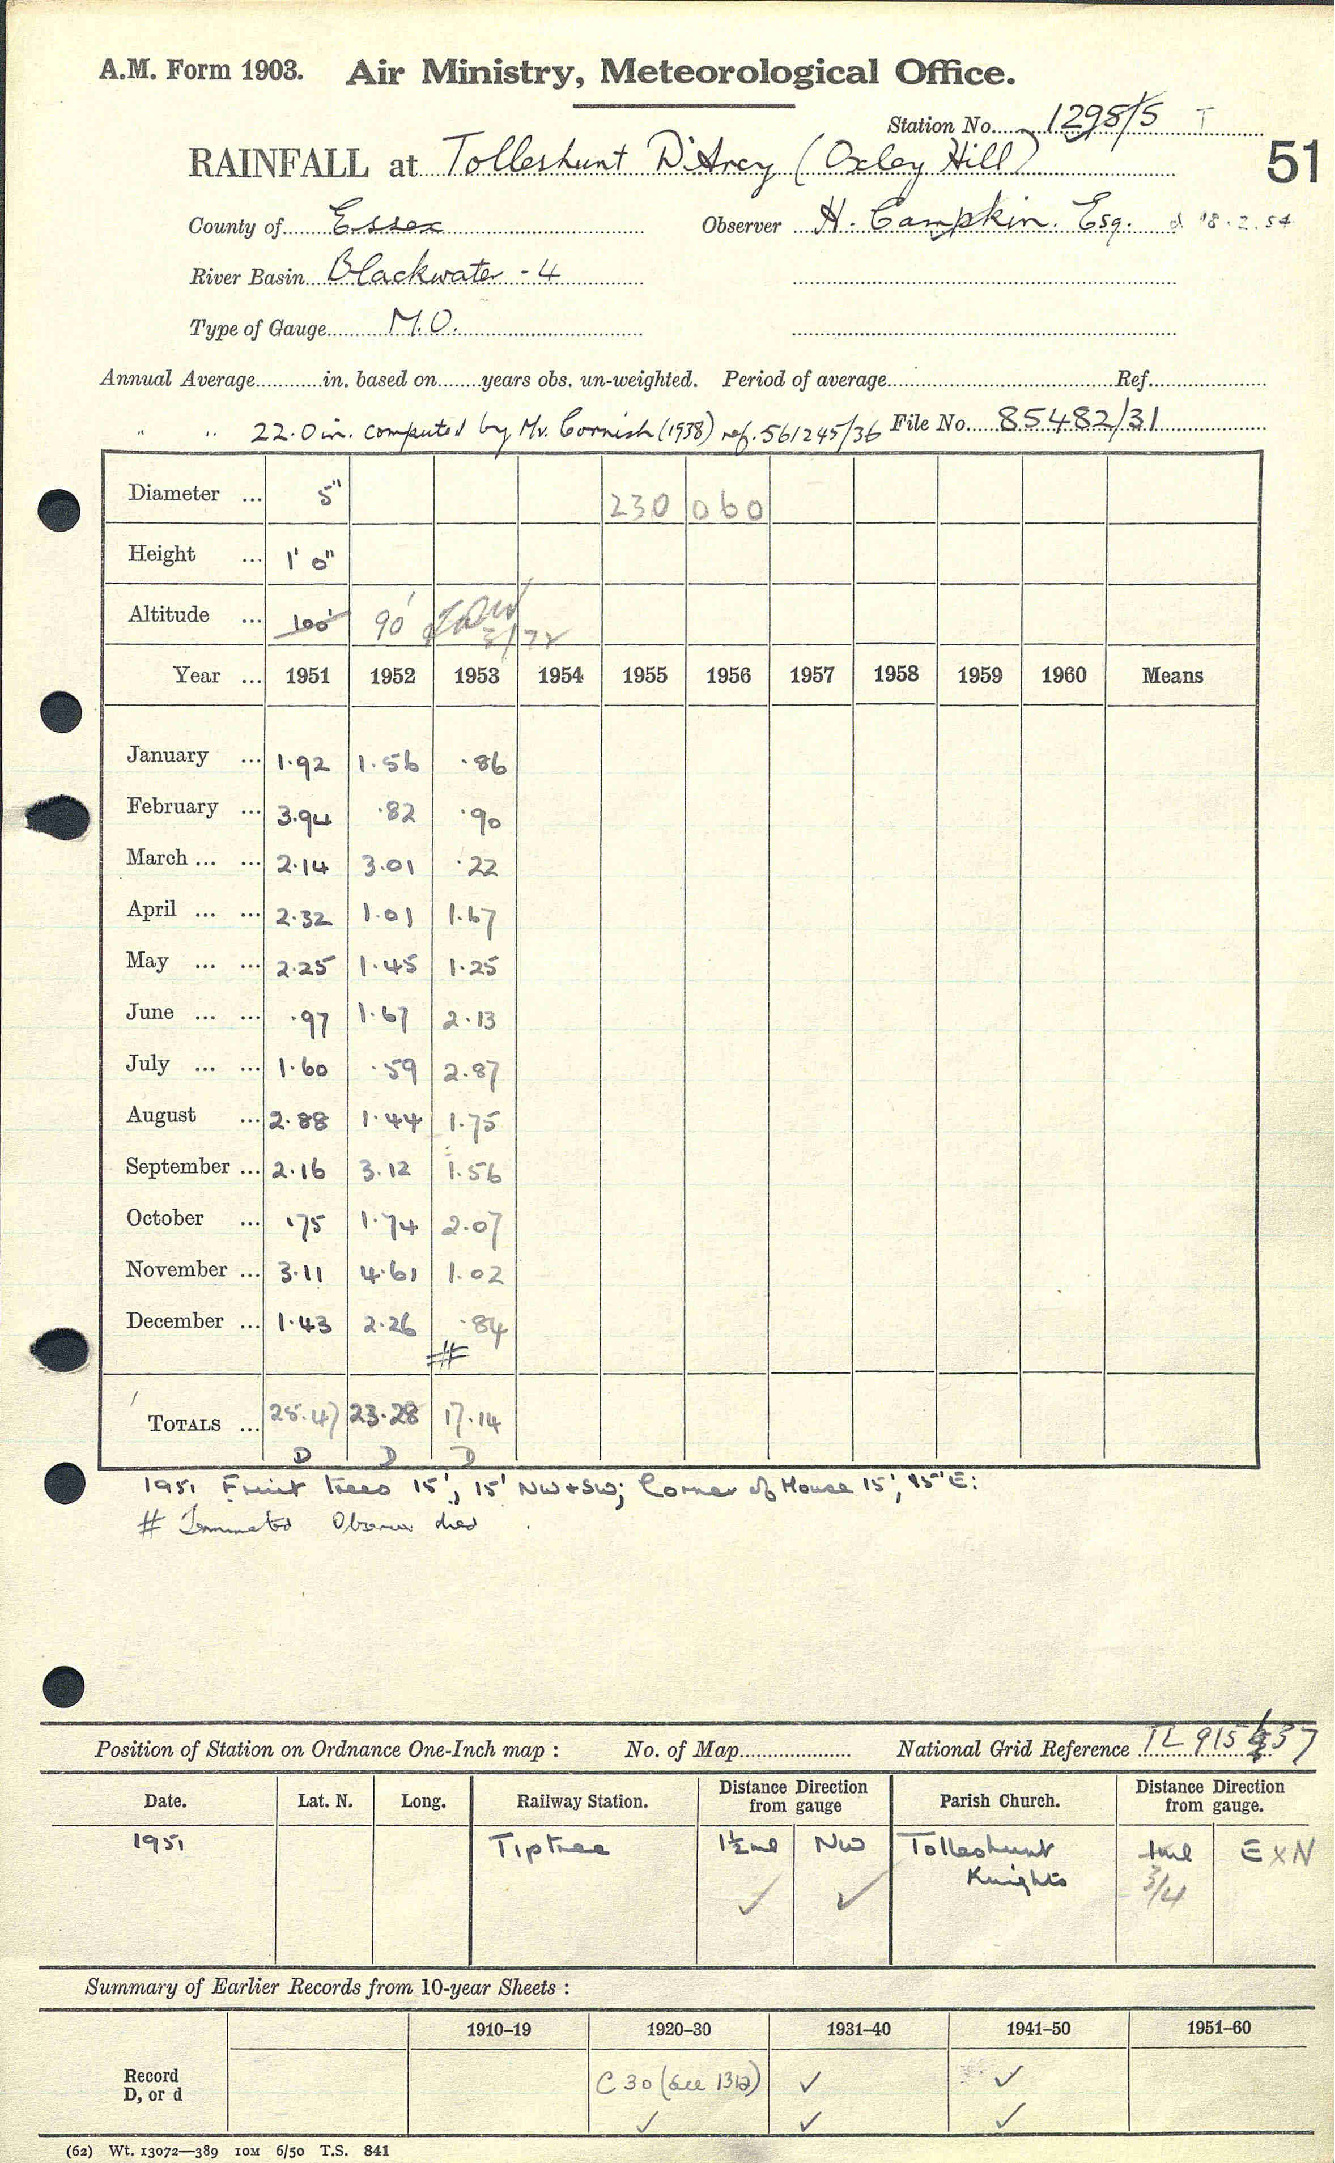 A.M. Form 1903. Air Ministry, Meteorological Office.
Station No. 1295/5 T
51
RAINFALL at Tolleshunt D'Arcy (Oxley Hill)
County of Essex Observer H. Campkin. Esq. d 18.2.54
River Basin Blackwater - 4
Type of Gauge M.O.
Annual Average in. based on years obs. un-weighted. Period of average Ref.
" " 22.0 in. computed by Mr. Cornish (1938) ref. 561245/36 File No. 85482/31
Diameter ... 5" 230 060
Height ... 1' 0"
Altitude ... 100' 90'
Year ... 1951 1952 1953 1954 1955 1956 1957 1958 1959 1960 Means
January ... 1.92 1.56 .86
February ... 3.94 .82 .90
March ... ... 2.14 3.01 .22
April ... ... 2.32 1.01 1.67
May ... ... 2.25 1.45 1.25
June ... ... .97 1.67 2.13
July ... ... 1.60 .59 2.87
August ... 2.88 1.44 1.75
September ... 2.16 3.12 1.56
October ... .75 1.74 2.07
November ... 3.11 4.61 1.02
December ... 1.43 2.26 .84
#
TOTALS ... 25.47 23.28 17.14
D D D
1951 Fruit trees 15', 15' NW + SW; Corner of House 15', 15' E:
# Terminated Observer died
Position of Station on Ordnance One-Inch map : No. of Map National Grid Reference TL 915 37
Date. Lat. N. Long. Railway Station. Distance Direction from gauge Parish Church. Distance Direction from gauge.
1951 Tiptree 1½ ml NW Tolleshunt Knights 1ml E x N
✓ ✓ 3/4
Summary of Earlier Records from 10-year Sheets :
1910–19 1920–30 1931–40 1941–50 1951–60
Record D, or d C 30 (see 1312) ✓ ✓
✓ ✓ ✓
(62) Wt. 13072—389 10M 6/50 T.S. 841